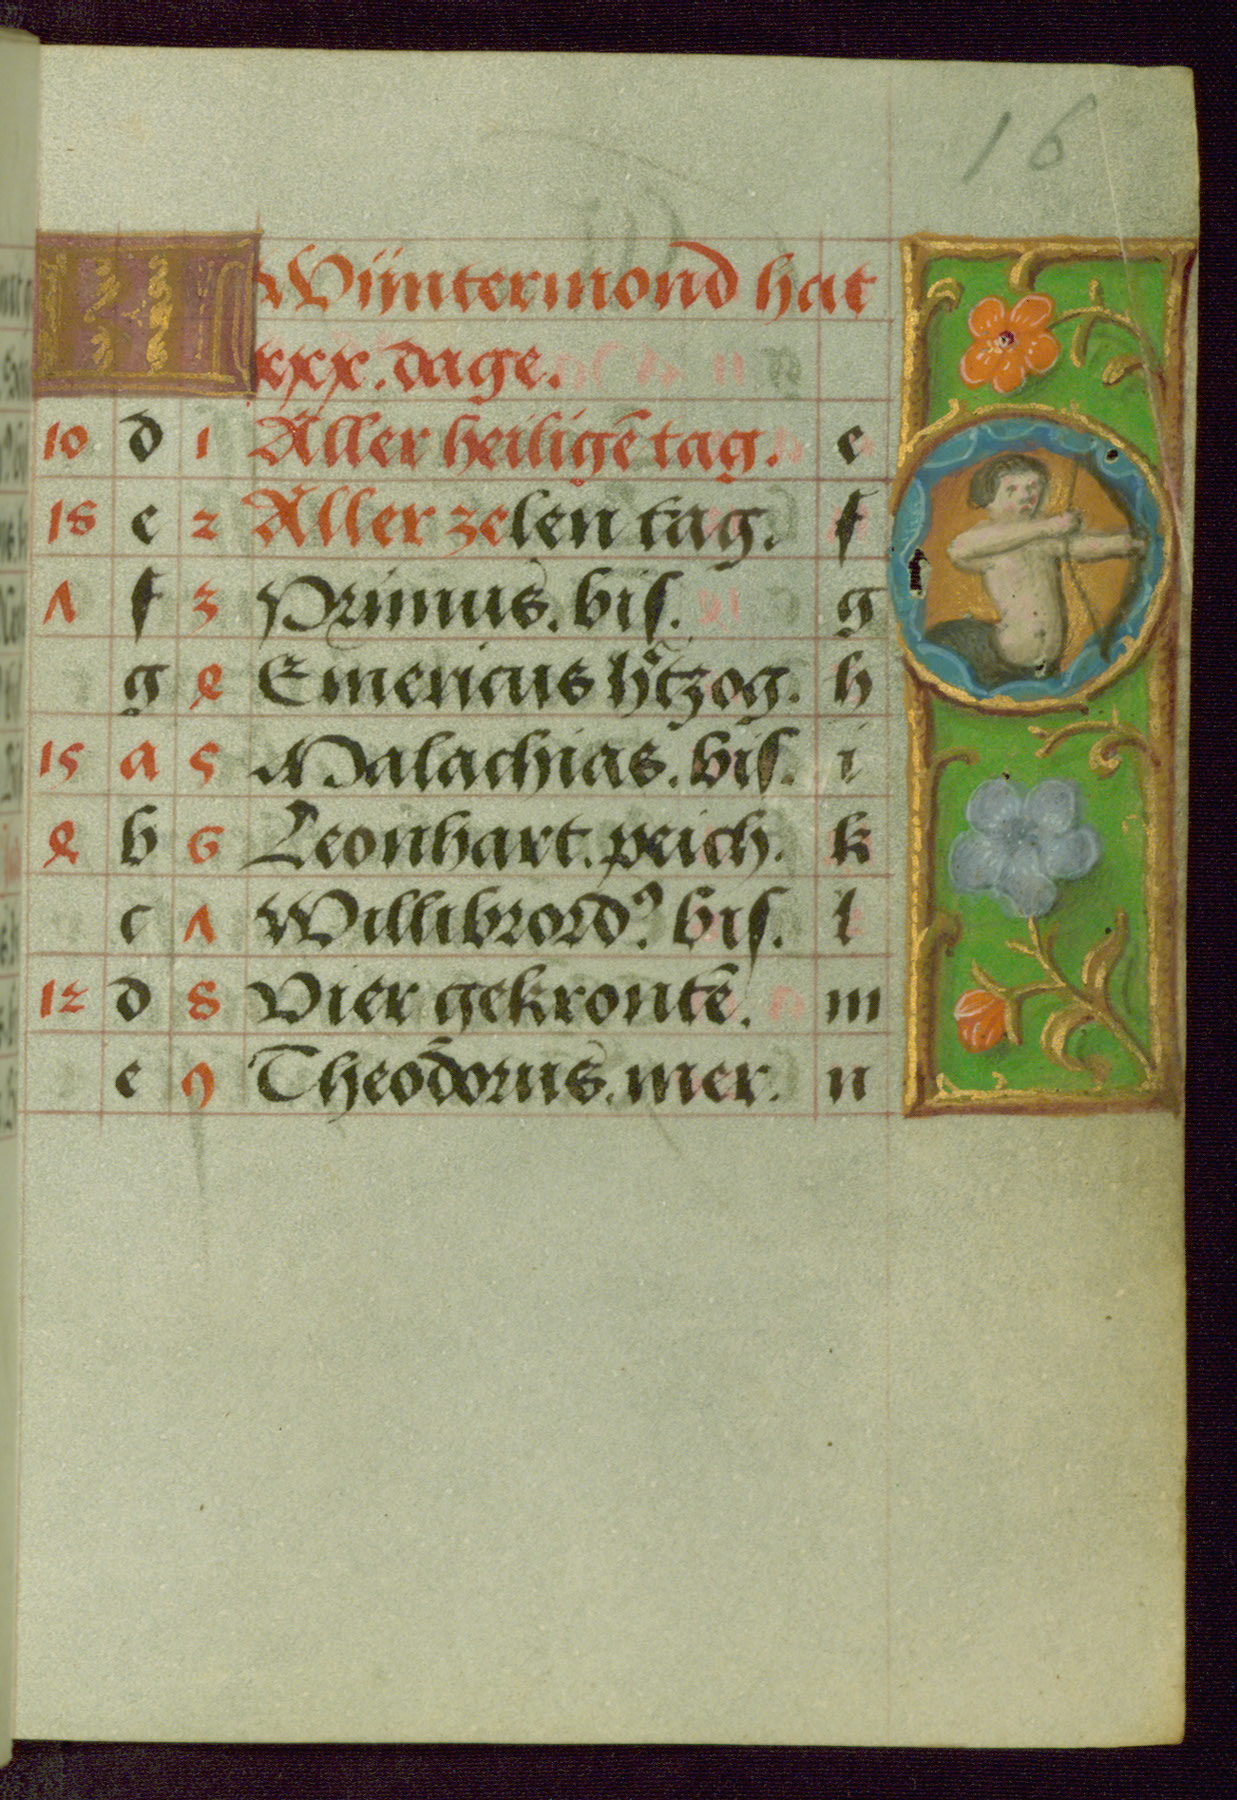 16
KL Wijntermond hat
xxx. dage.
10 d 1 Aller heiligē tag. e
18 e 2 Aller zelen tag. f
7 f 3 Primus. bis. g
g 4 Emericus h̄tzog. h
15 a 5 Malachias. bis. i
4 b 6 Leonhart. peich. k
c 7 Willibrord⁹ bis. l
12 d 8 Vier gekrontē. m
e 9 Theodorus. mer. n